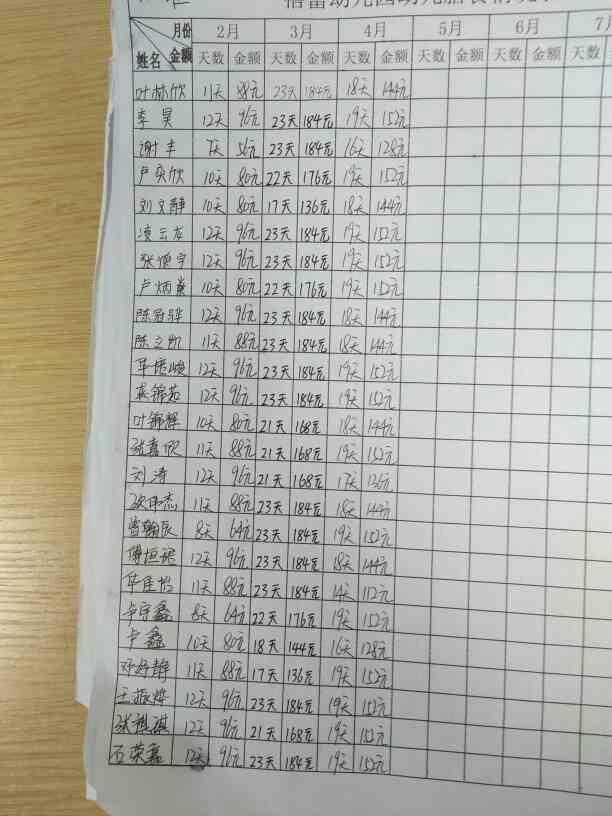 月份 2月 3月 4月 5月 6月 7月
姓名 金额 天数 金额 天数 金额 天数 金额 天数 金额 天数 金额 天数
叶林欣 11天 88元 23天 184元 18天 144元
李昊 12天 96元 23天 184元 19天 152元
谢丰 7天 56元 23天 184元 16天 128元
卢奕欣 10天 80元 22天 176元 19天 152元
刘文静 10天 80元 17天 136元 18天 144元
凌云龙 12天 96元 23天 184元 19天 152元
张恒宇 12天 96元 23天 184元 19天 152元
卢炳燊 10天 80元 22天 176元 19天 152元
陈冠骅 12天 96元 23天 184元 18天 144元
陈立凯 11天 88元 23天 184元 18天 144元
华培峻 12天 96元 23天 184元 19天 152元
袁锦茹 12天 96元 23天 184元 19天 152元
叶锦辉 10天 80元 21天 168元 18天 144元
张嘉欣 11天 88元 21天 168元 19天 152元
刘涛 12天 96元 21天 168元 17天 136元
伟杰 11天 88元 23天 184元 18天 144元
曾翰辰 8天 64元 23天 184元 19天 152元
傅恒 12天 96元 23天 184元 18天 144元
华佳怡 11天 88元 23天 184元 14天 112元
卢宇鑫 8天 64元 22天 176元 19天 152元
卢鑫 10天 80元 18天 144元 16天 128元
邓静 11天 88元 17天 136元 19天 152元
王振烨 12天 96元 23天 184元 19天 152元
张祺琪 12天 96元 21天 168元 19天 152元
石荣嘉 12天 96元 23天 184元 19天 152元